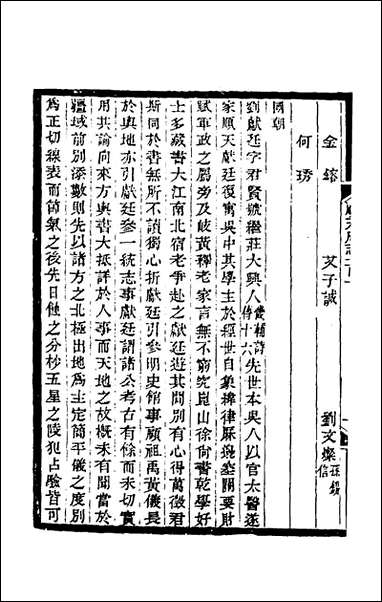 金鎔 艾子誠 劉文燦
何琇
國朝
劉獻廷字君賢號繼莊大興人畿輔詩傳十六先世本吳人以官太醫遂
家順天獻廷復寓吳中其學主於經世自象緯律厤邊塞關要財
賦軍政之屬旁及岐黃釋老家言無不窮究崑山徐尚書乾學好
士多藏書大江南北宿老爭赴之獻廷遊其間別有心得萬徵君
斯同於書無所不讀獨心折獻廷引參明史館事顧祖禹黃儀長
於輿地亦引獻廷參一統志事獻廷謂諸公考古有餘而未切實
用共論向來方輿書大抵詳於人事而天地之故概未有聞當於
疆域前別添數則先以諸方之北極出地爲主定簡平儀之度別
爲正切線表而節氣之後先日蝕之分杪五星之陵犯占驗皆可